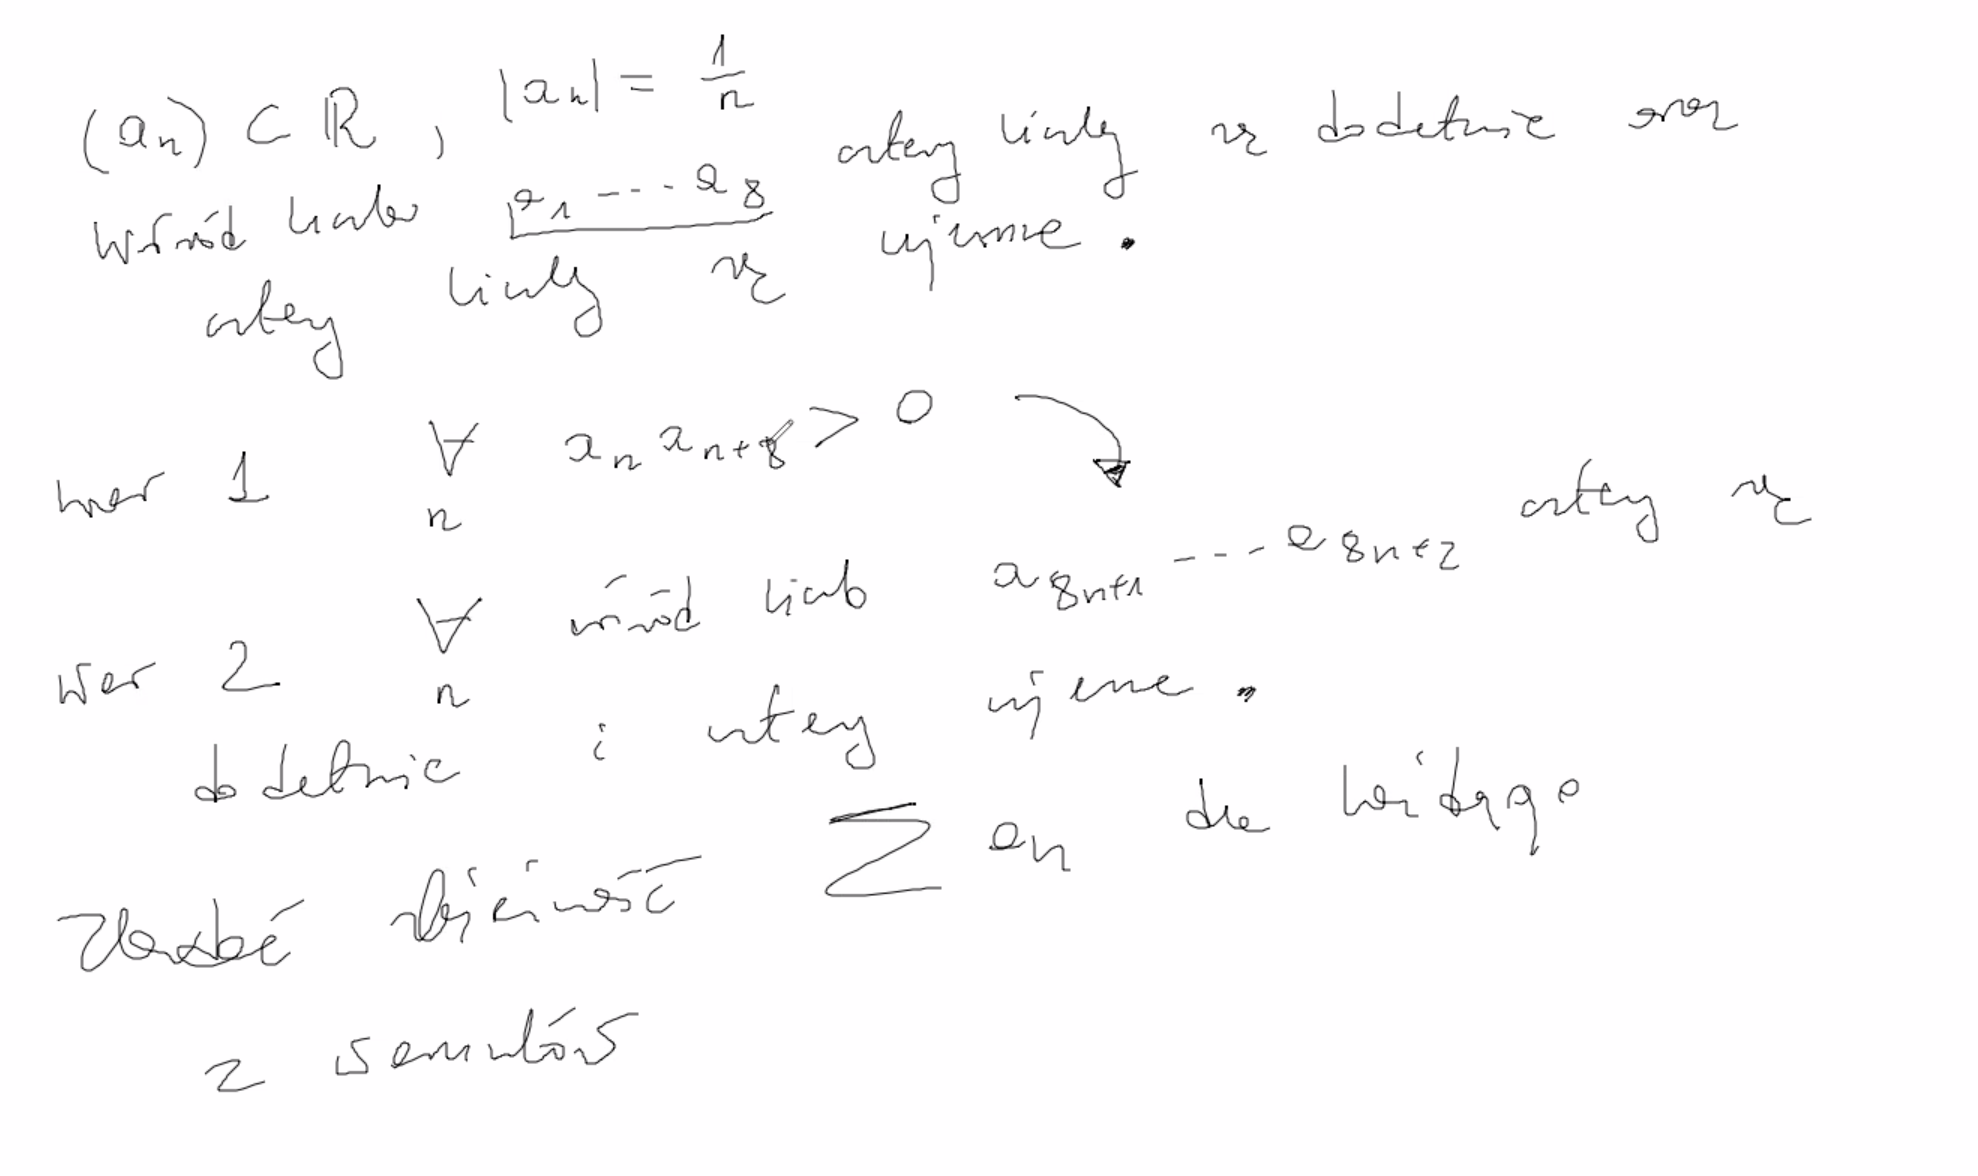 (aₙ) ⊂ ℝ, |aₙ| = 1/n
Wśród liczb a₁ --- a₈ cztery liczby są dodatnie oraz
cztery liczby są ujemne.
war 1 ∀n aₙ aₙ₊₈ > 0
war 2 ∀n wśród liczb a₈ₙ₊₁ --- a₈ₙ₊₂ cztery są
dodatnie i cztery ujemne.
Zbadać zbieżność ∑ aₙ dla każdego
z warunków